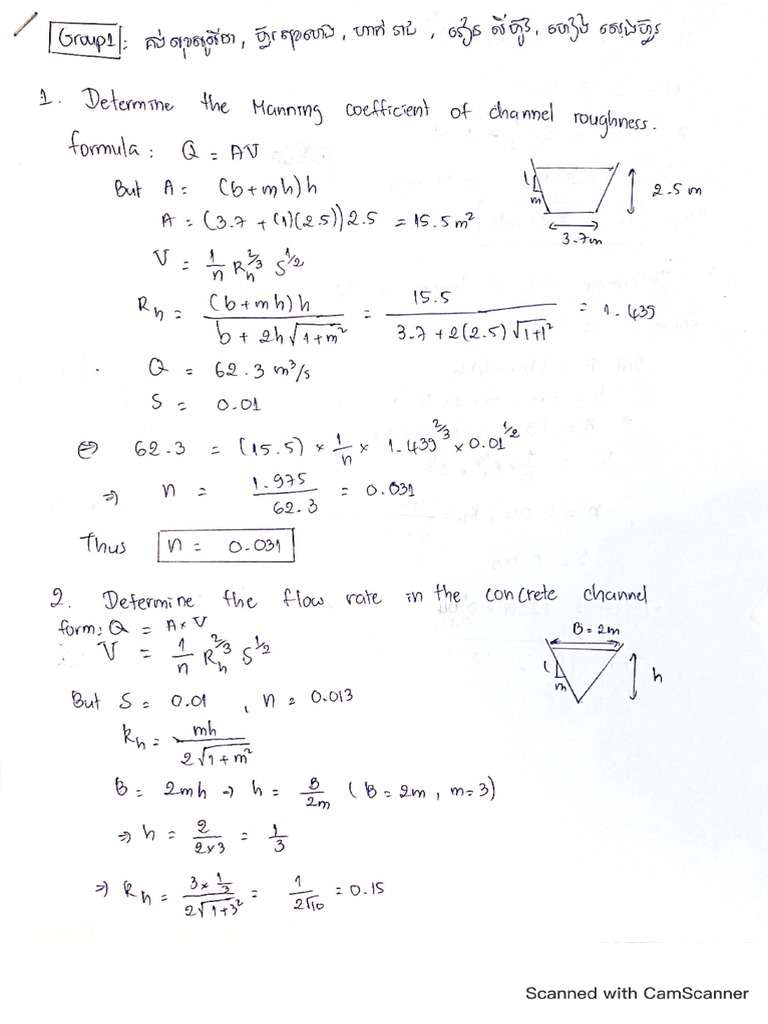 Group1 :
1. Determine the Manning coefficient of channel roughness.
formula : Q = AV
But A = (b+mh)h
A = (3.7 + (1)(2.5)) 2.5 = 15.5 m²
1
m
2.5 m
3.7m
V = 1/n Rh^2/3 S^1/2
Rh = (b+mh)h / b + 2h√1+m² = 15.5 / 3.7 + 2(2.5)√1+1² = 1.439
Q = 62.3 m³/s
S = 0.01
⇔ 62.3 = (15.5) × 1/n × 1.439^2/3 × 0.01^1/2
⇒ n = 1.975 / 62.3 = 0.031
Thus n = 0.031
2. Determine the flow rate in the concrete channel
form: Q = A×V
V = 1/n Rh^2/3 S^1/2
B = 2m
1
m
h
But S = 0.01 , n = 0.013
Rh = mh / 2√1+m²
B = 2mh ⇒ h = B/2m ( B = 2m , m = 3)
⇒ h = 2 / 2×3 = 1/3
⇒ Rh = 3 × 1/3 / 2√1+3² = 1 / 2√10 = 0.15
Scanned with CamScanner